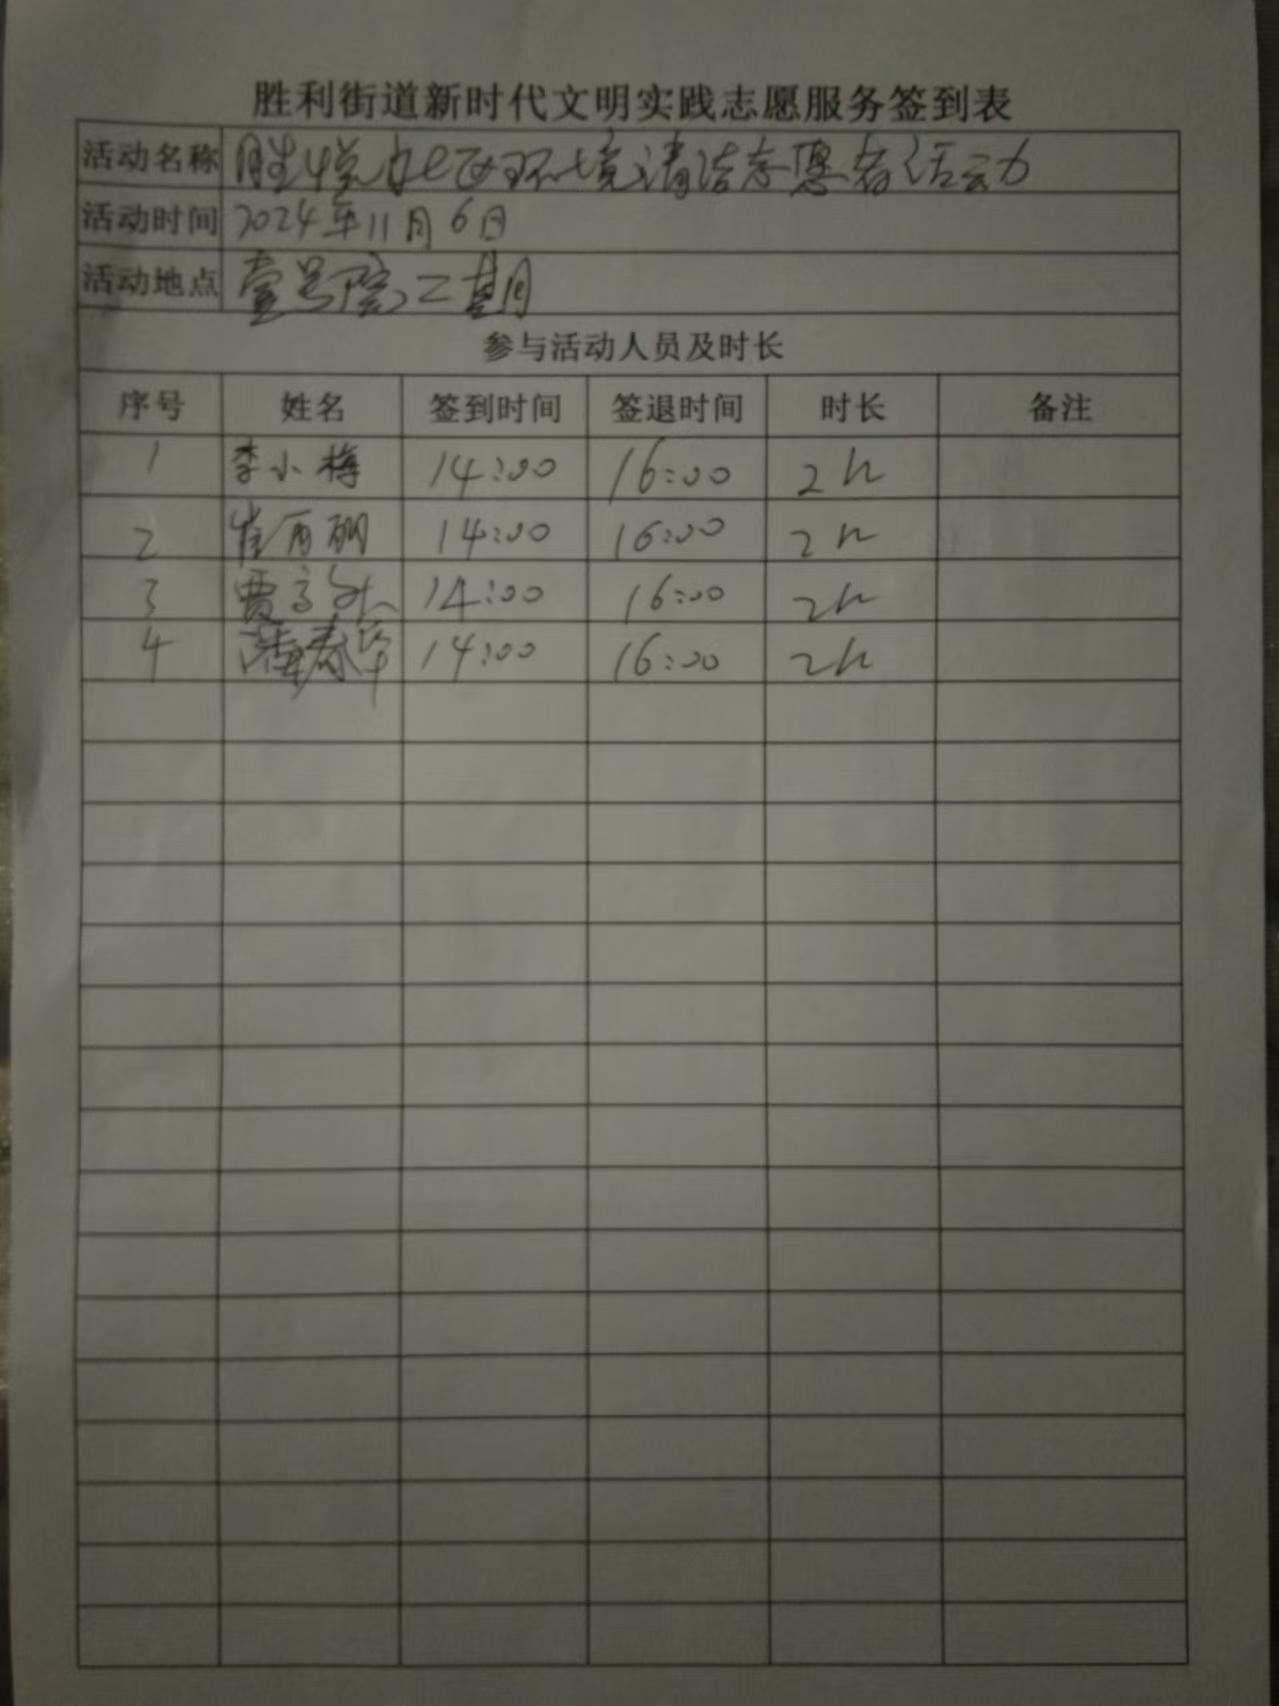 胜利街道新时代文明实践志愿服务签到表
活动名称 胜悦社区环境清洁志愿者活动
活动时间 2024年11月6日
活动地点 壹号院二期
参与活动人员及时长
序号 姓名 签到时间 签退时间 时长 备注
1 李小梅 14:00 16:00 2h
2 崔丽 14:00 16:00 2h
3 贾 14:00 16:00 2h
4 春华 14:00 16:00 2h